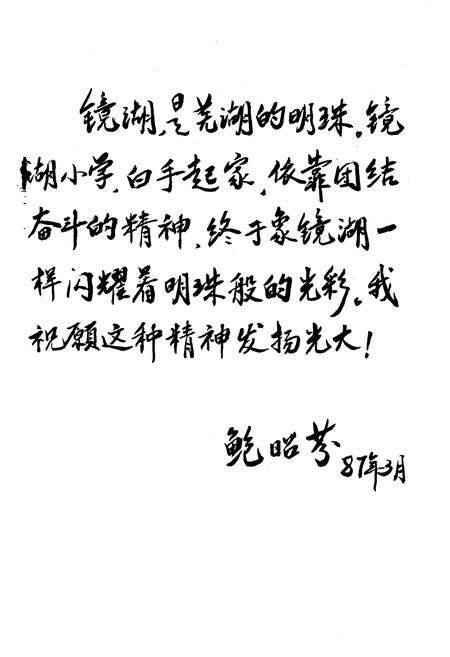 镜湖,是芜湖的明珠。镜
湖小学,白手起家,依靠团结
奋斗的精神,终于象镜湖一
样闪耀着明珠般的光彩。我
祝愿这种精神发扬光大!
鲍昭芬
87年3月